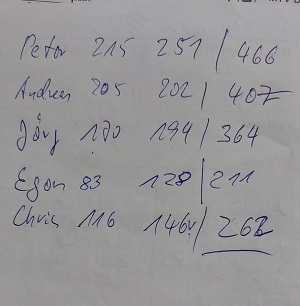 Peter 215 251 / 466
Andreas 205 202 / 407
Jörg 170 194 / 364
Egon 83 128 / 211
Chris 116 146 / 262